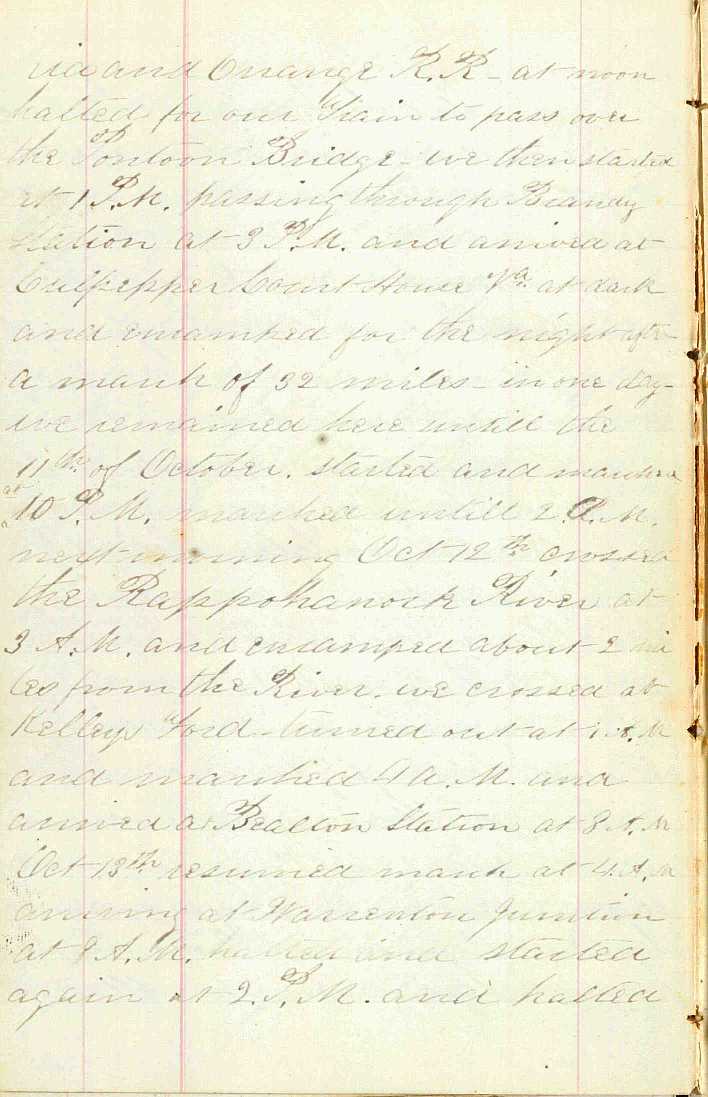 ria and Orange R.R - at noon
halted for our Train to pass over
the Pontoon Bridge - we then started
at 1 P.M. passing through Brandy
Station at 3 P.M. and arrived at
Culpepper Court House Va. at dark
and encamped for the night after
a march of 32 miles - in one day -
we remained here untill the
11th of October. started and marched
at
10 P.M. marched untill 2 A.M.
next morning Oct 12th crossed
the Rappohanock River at
3 A.M. and encamped about 2 mi
les from the River. we crossed at
Kelleys Ford - turned out at 1 A.M
and marched 4 A.M. and
arrived at Bealton Station at 8 A.M
Oct 13th resumed march at 4 A.M
arriving at Warrenton Junction
at 8 A.M. halted and started
again at 2. P.M. and halted